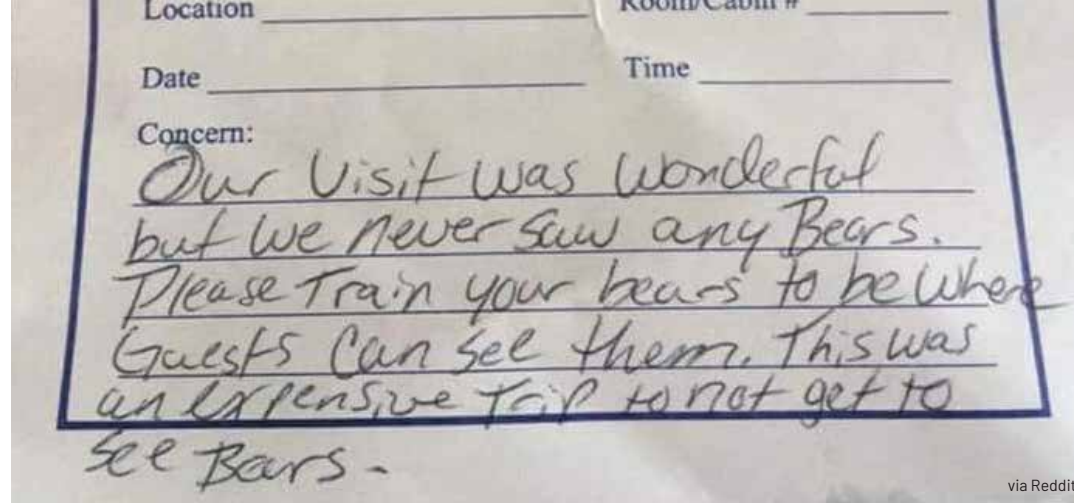 Location Room/Cabin #
Date Time
Concern:
Our Visit was Wonderful
but we never saw any Bears.
Please Train your bears to be where
Guests can see them. This was
an expensive Trip to not get to
see Bears.
via Reddit